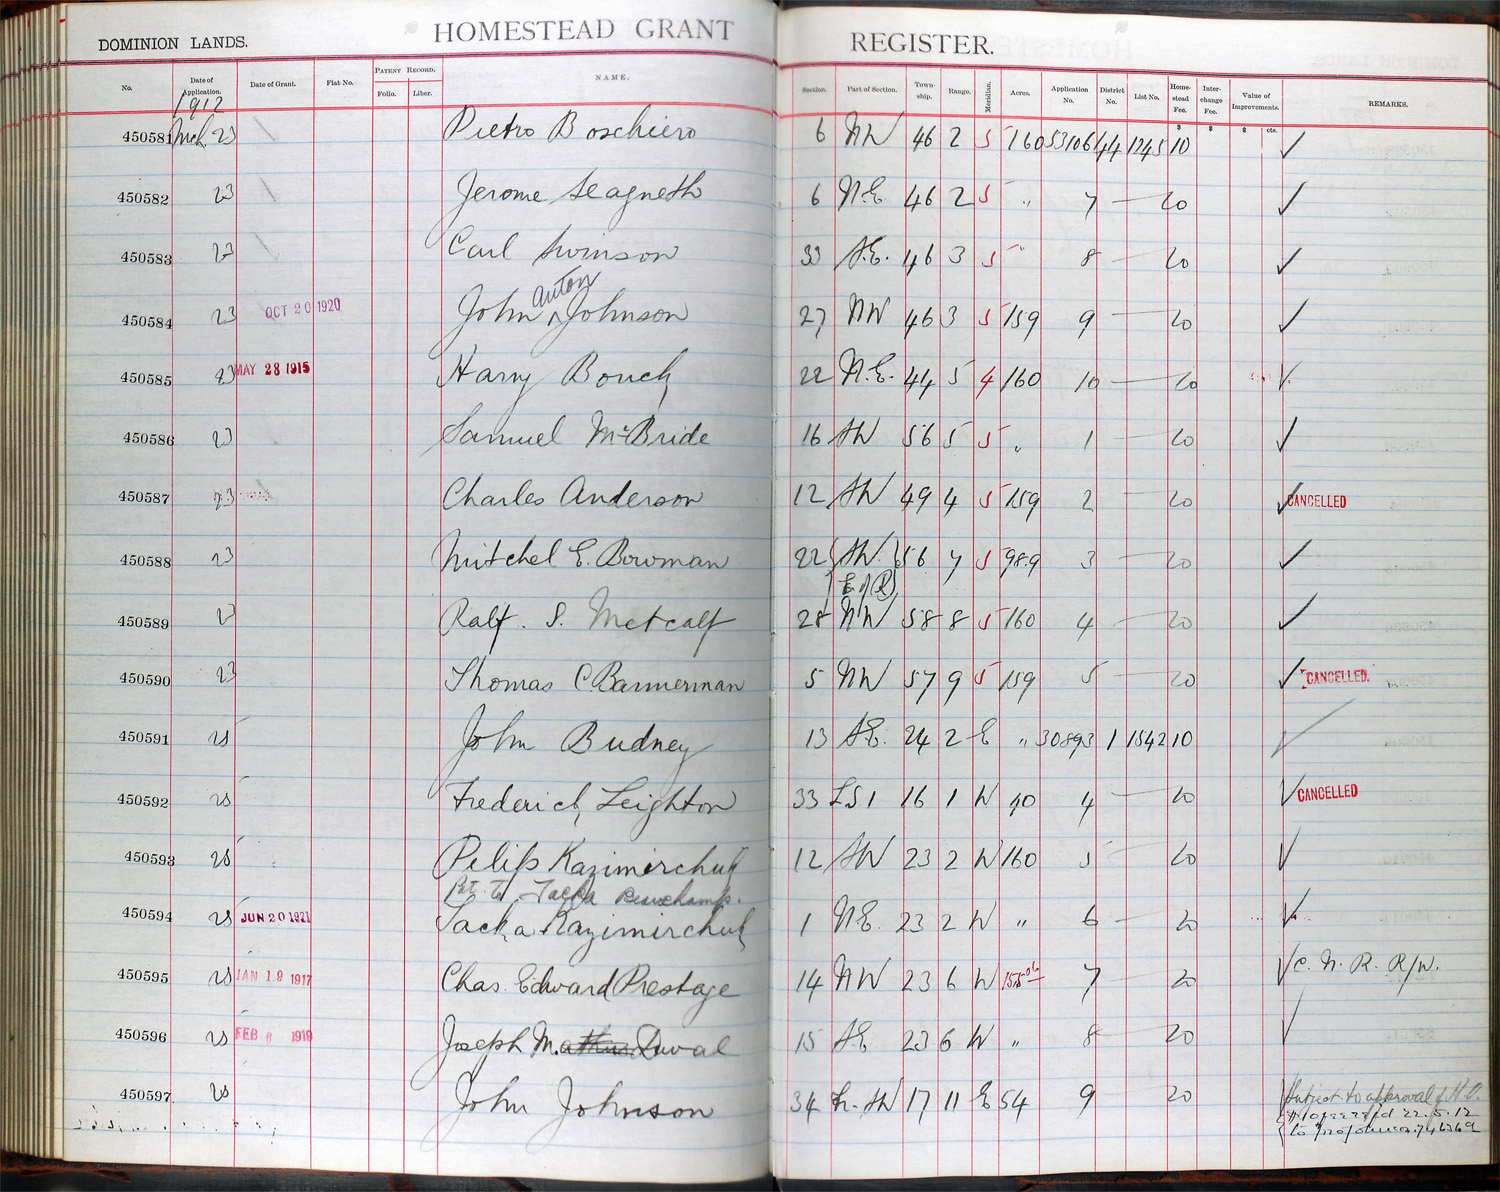 DOMINION LANDS. HOMESTEAD GRANT REGISTER.
No. Date of Application. Date of Grant. Fiat No. PATENT RECORD. Folio. Liber. NAME. Section. Part of Section. Township. Range. Meridian. Acres. Application No. District No. List No. Homestead Fee. Interchange Fee. Value of Improvements. REMARKS.
1912 $ $ $ cts.
450581 Mch 23 Pietro Boschiero 6 NW 46 2 5 160 53106 44 1245 10 ✓
450582 23 Jerome Seagneth 6 N.E. 46 2 5 " 7 — 20 ✓
450583 23 Carl Swinson 33 S.E. 46 3 5 " 8 — 20 ✓
450584 23 OCT 20 1920 John Anton Johnson 27 NW 46 3 5 159 9 — 20 ✓
450585 23 MAY 28 1915 Harry Bouck 22 N.E. 44 5 4 160 10 — 20 ✓
450586 23 Samuel McBride 16 SW 56 5 5 " 1 — 20 ✓
450587 23 Charles Anderson 12 SW 49 4 5 159 2 — 20 ✓ CANCELLED
450588 23 Mitchel E. Bowman 22 SW. 56 7 5 98.9 3 — 20 ✓
E of R
450589 23 Ralf. S. Metcalf 28 NW 58 8 5 160 4 — 20 ✓
450590 23 Thomas C Bannerman 5 NW 57 9 5 159 5 — 20 ✓ CANCELLED.
450591 25 John Budney 13 S.E. 24 2 E " 30893 1 1542 10 ✓
450592 25 Frederick Leighton 33 LS 1 16 1 W 40 4 — 20 ✓ CANCELLED
450593 25 Pilip Kazimirchuk 12 SW 23 2 W 160 5 — 20 ✓
Pat. to Jacka
450594 25 JUN 20 1921 Jacka Kazimirchuk 1 N.E. 23 2 W " 6 — 20 ✓
450595 25 JAN 19 1917 Chas. Edward Prestage 14 NW 23 6 W 155.06 7 — 20 ✓ C. N. R. R/W.
450596 25 FEB 1919 Joseph M. Duval 15 SE 23 6 W " 8 — 20 ✓
450597 25 John Johnson 34 SW 17 11 E 54 9 — 20 Subject to approval of H.O.
22.5.12